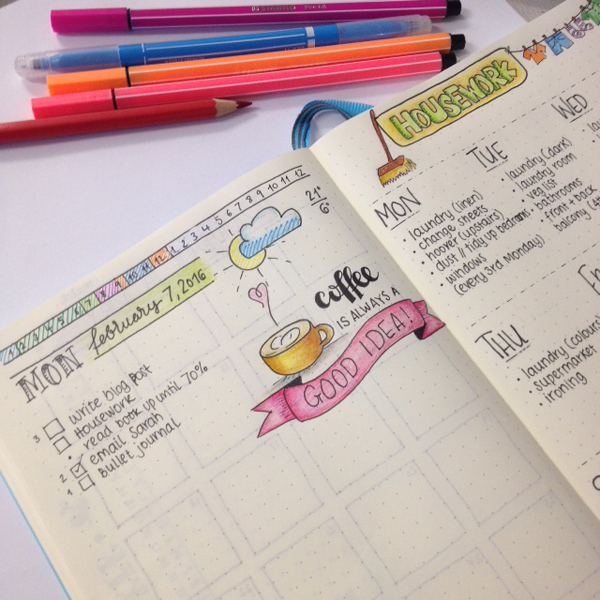 10 11 12 1 2 3 4 5 6 7 8 9 10 11 12
21°
6°
MON february 7, 2016
write blog post
3 Housework
read book up until 70%
2 email Sarah
1 Bullet journal
coffee
IS ALWAYS A
GOOD IDEA!
HOUSEWORK
MON
• laundry (linen)
change sheets
• hoover (upstairs)
• dust // tidy up bedrooms
• windows
(every 3rd Monday)
TUE
• laundry (dark)
laundry room
• veg list
• bathrooms
• front + back
balcony
WED
THU
• laundry (colours)
• supermarket
• ironing